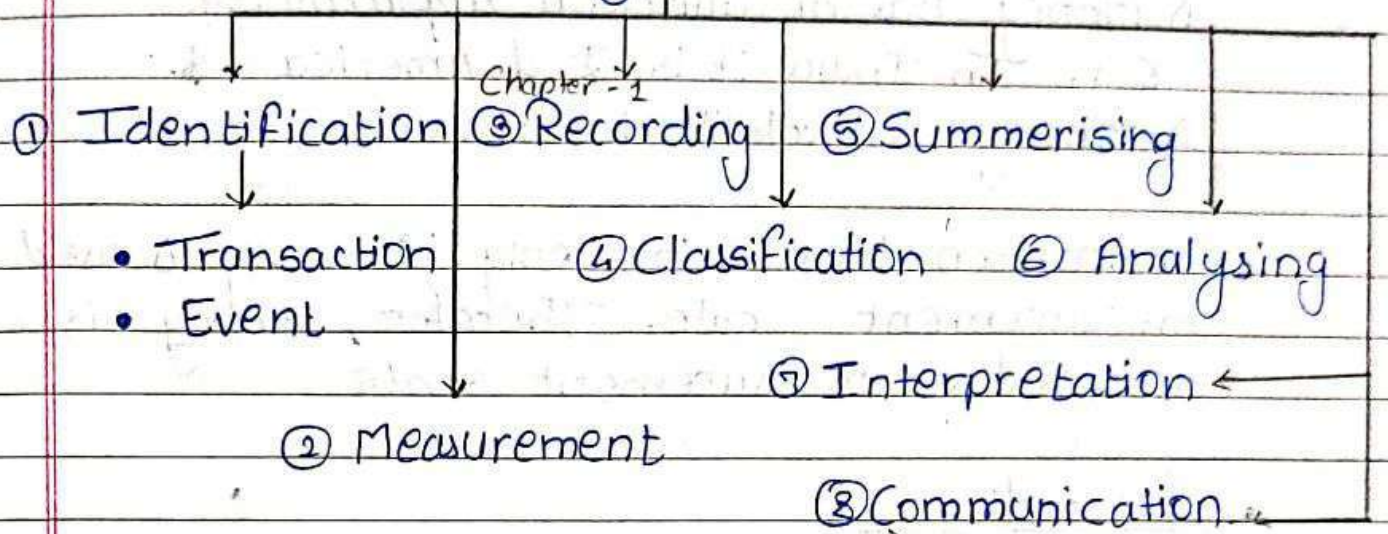 Chapter-1
① Identification ③ Recording ⑤ Summerising
• Transaction ④ Classification ⑥ Analysing
• Event
⑦ Interpretation
② Measurement
⑧ Communication